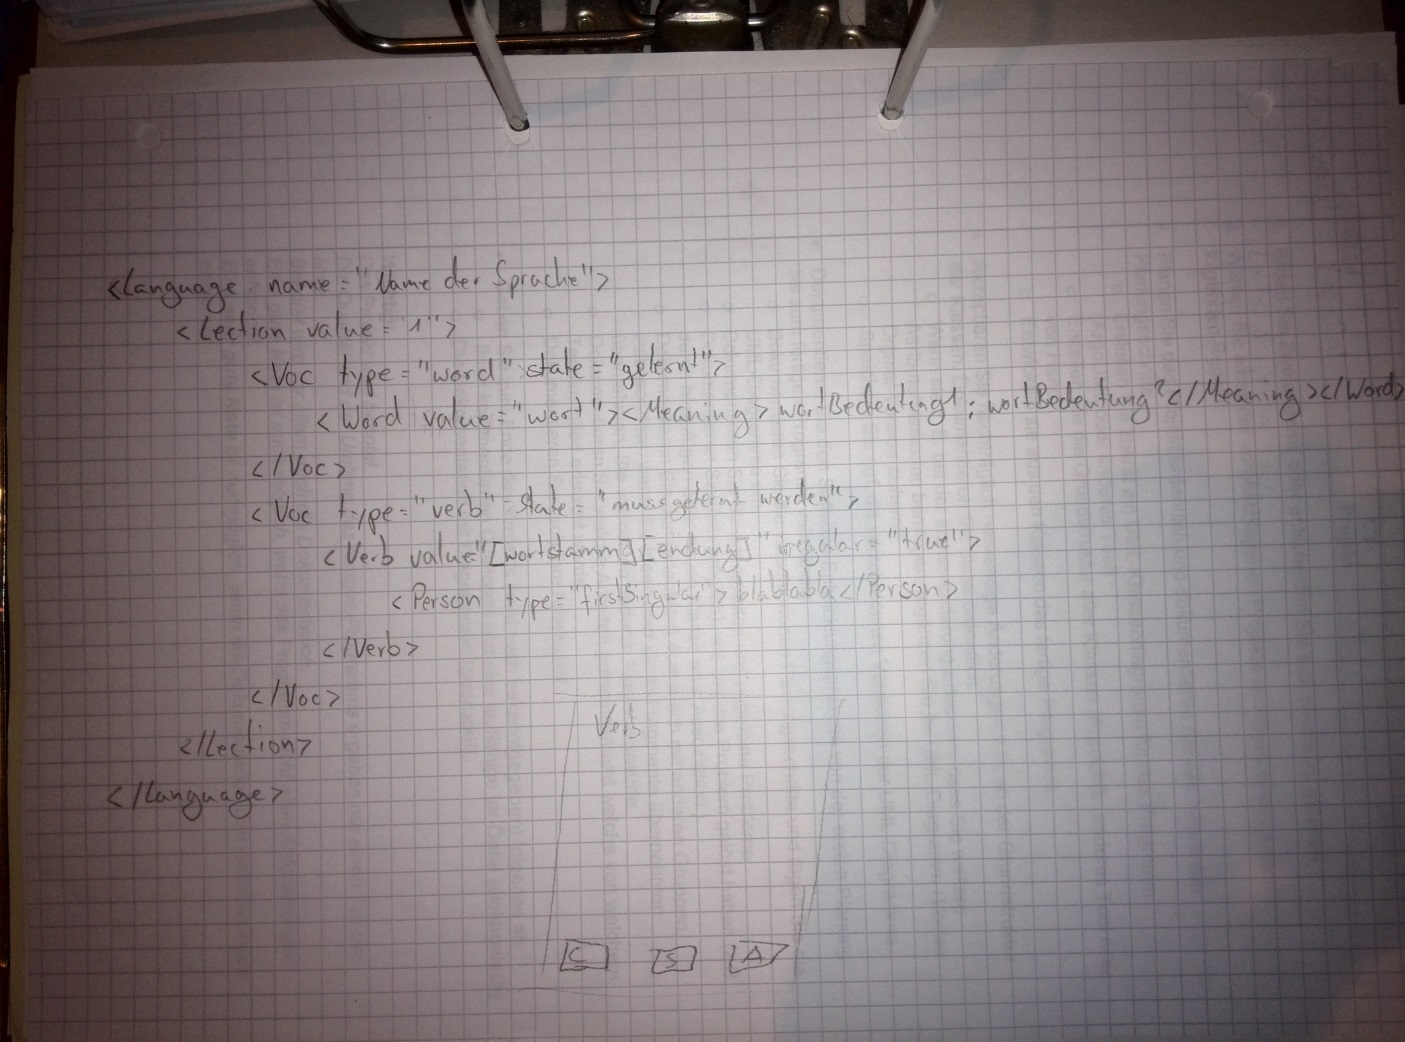 <Language name="Name der Sprache">
<Lection value="1">
<Voc type="word" state="gelernt">
<Word value="wort"><Meaning>wortBedeutung1; wortBedeutung2</Meaning></Word>
</Voc>
<Voc type="verb" state="muss gelernt werden">
<Verb value="[wortstamm][endung]" iregular="true">
<Person type="firstSingular">blablabla</Person>
</Verb>
</Voc>
</Lection>
</Language>
Verb
C S A